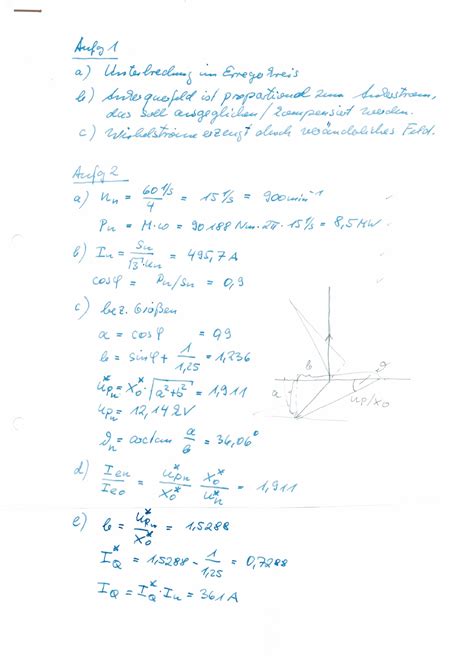 Aufg 1
a) Unterbrechung im Erregerkreis
b) Ankerquerfeld ist proportional zum Ankerstrom,
das soll ausgeglichen / kompensiert werden.
c) Wirbelströme erzeugt durch veränderliches Feld.
Aufg 2
a) nn = 60 1/s / 4 = 15 1/s = 900 min⁻¹
Pn = M·ω = 90188 Nm·2π·15 1/s = 8,5 MW
b) In = Sn / √3·Un = 495,7 A
cosφ = Pn/Sn = 0,9
c) bez. Größen
a = cosφ = 0,9
b = sinφ + 1/1,25 = 1,236
u*pn = X*o·√(a²+b²) = 1,911
upn = 12,142V
ϑn = arctan a/b = 36,06°
d) Ien/Ieo = u*pn/X*o X*o/u*n = 1,911
e) b = u*pn/X*o = 1,5288
I*Q = 1,5288 - 1/1,25 = 0,7288
IQ = I*Q·In = 361A
b
ϑ
a
up/xo